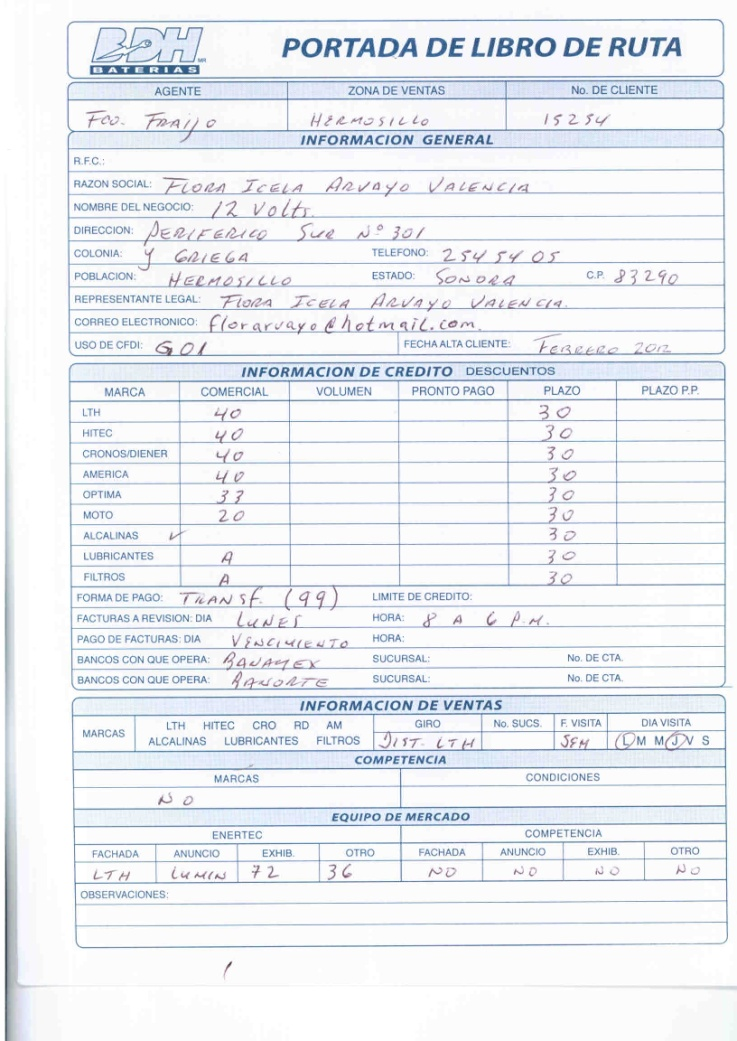 BDH MR PORTADA DE LIBRO DE RUTA
BATERIAS
AGENTE ZONA DE VENTAS No. DE CLIENTE
Fco. FRAIJO HERMOSILLO 15254
INFORMACION GENERAL
R.F.C.:
RAZON SOCIAL: FLORA ICELA ARVAYO VALENCIA
NOMBRE DEL NEGOCIO: 12 Volts.
DIRECCION: PERIFERICO SUR Nº 301
COLONIA: Y GRIEGA TELEFONO: 254 54 05
POBLACION: HERMOSILLO ESTADO: SONORA C.P. 83290
REPRESENTANTE LEGAL: FLORA ICELA ARVAYO VALENCIA.
CORREO ELECTRONICO: florarvayo@hotmail.com.
USO DE CFDI: G01 FECHA ALTA CLIENTE: FEBRERO 2012
INFORMACION DE CREDITO DESCUENTOS
MARCA COMERCIAL VOLUMEN PRONTO PAGO PLAZO PLAZO P.P.
LTH 40 30
HITEC 40 30
CRONOS/DIENER 40 30
AMERICA 40 30
OPTIMA 33 30
MOTO 20 30
ALCALINAS ✓ 30
LUBRICANTES A 30
FILTROS A 30
FORMA DE PAGO: TRANSF. (99) LIMITE DE CREDITO:
FACTURAS A REVISION: DIA LUNES HORA: 8 A 6 P.M.
PAGO DE FACTURAS: DIA VENCIMIENTO HORA:
BANCOS CON QUE OPERA: BANAMEX SUCURSAL: No. DE CTA.
BANCOS CON QUE OPERA: BANORTE SUCURSAL: No. DE CTA.
INFORMACION DE VENTAS
MARCAS LTH HITEC CRO RD AM GIRO No. SUCS. F. VISITA DIA VISITA
ALCALINAS LUBRICANTES FILTROS DIST. LTH SEM L M M J V S
COMPETENCIA
MARCAS CONDICIONES
NO
EQUIPO DE MERCADO
ENERTEC COMPETENCIA
FACHADA ANUNCIO EXHIB. OTRO FACHADA ANUNCIO EXHIB. OTRO
LTH LUMIN 72 36 NO NO NO NO
OBSERVACIONES: